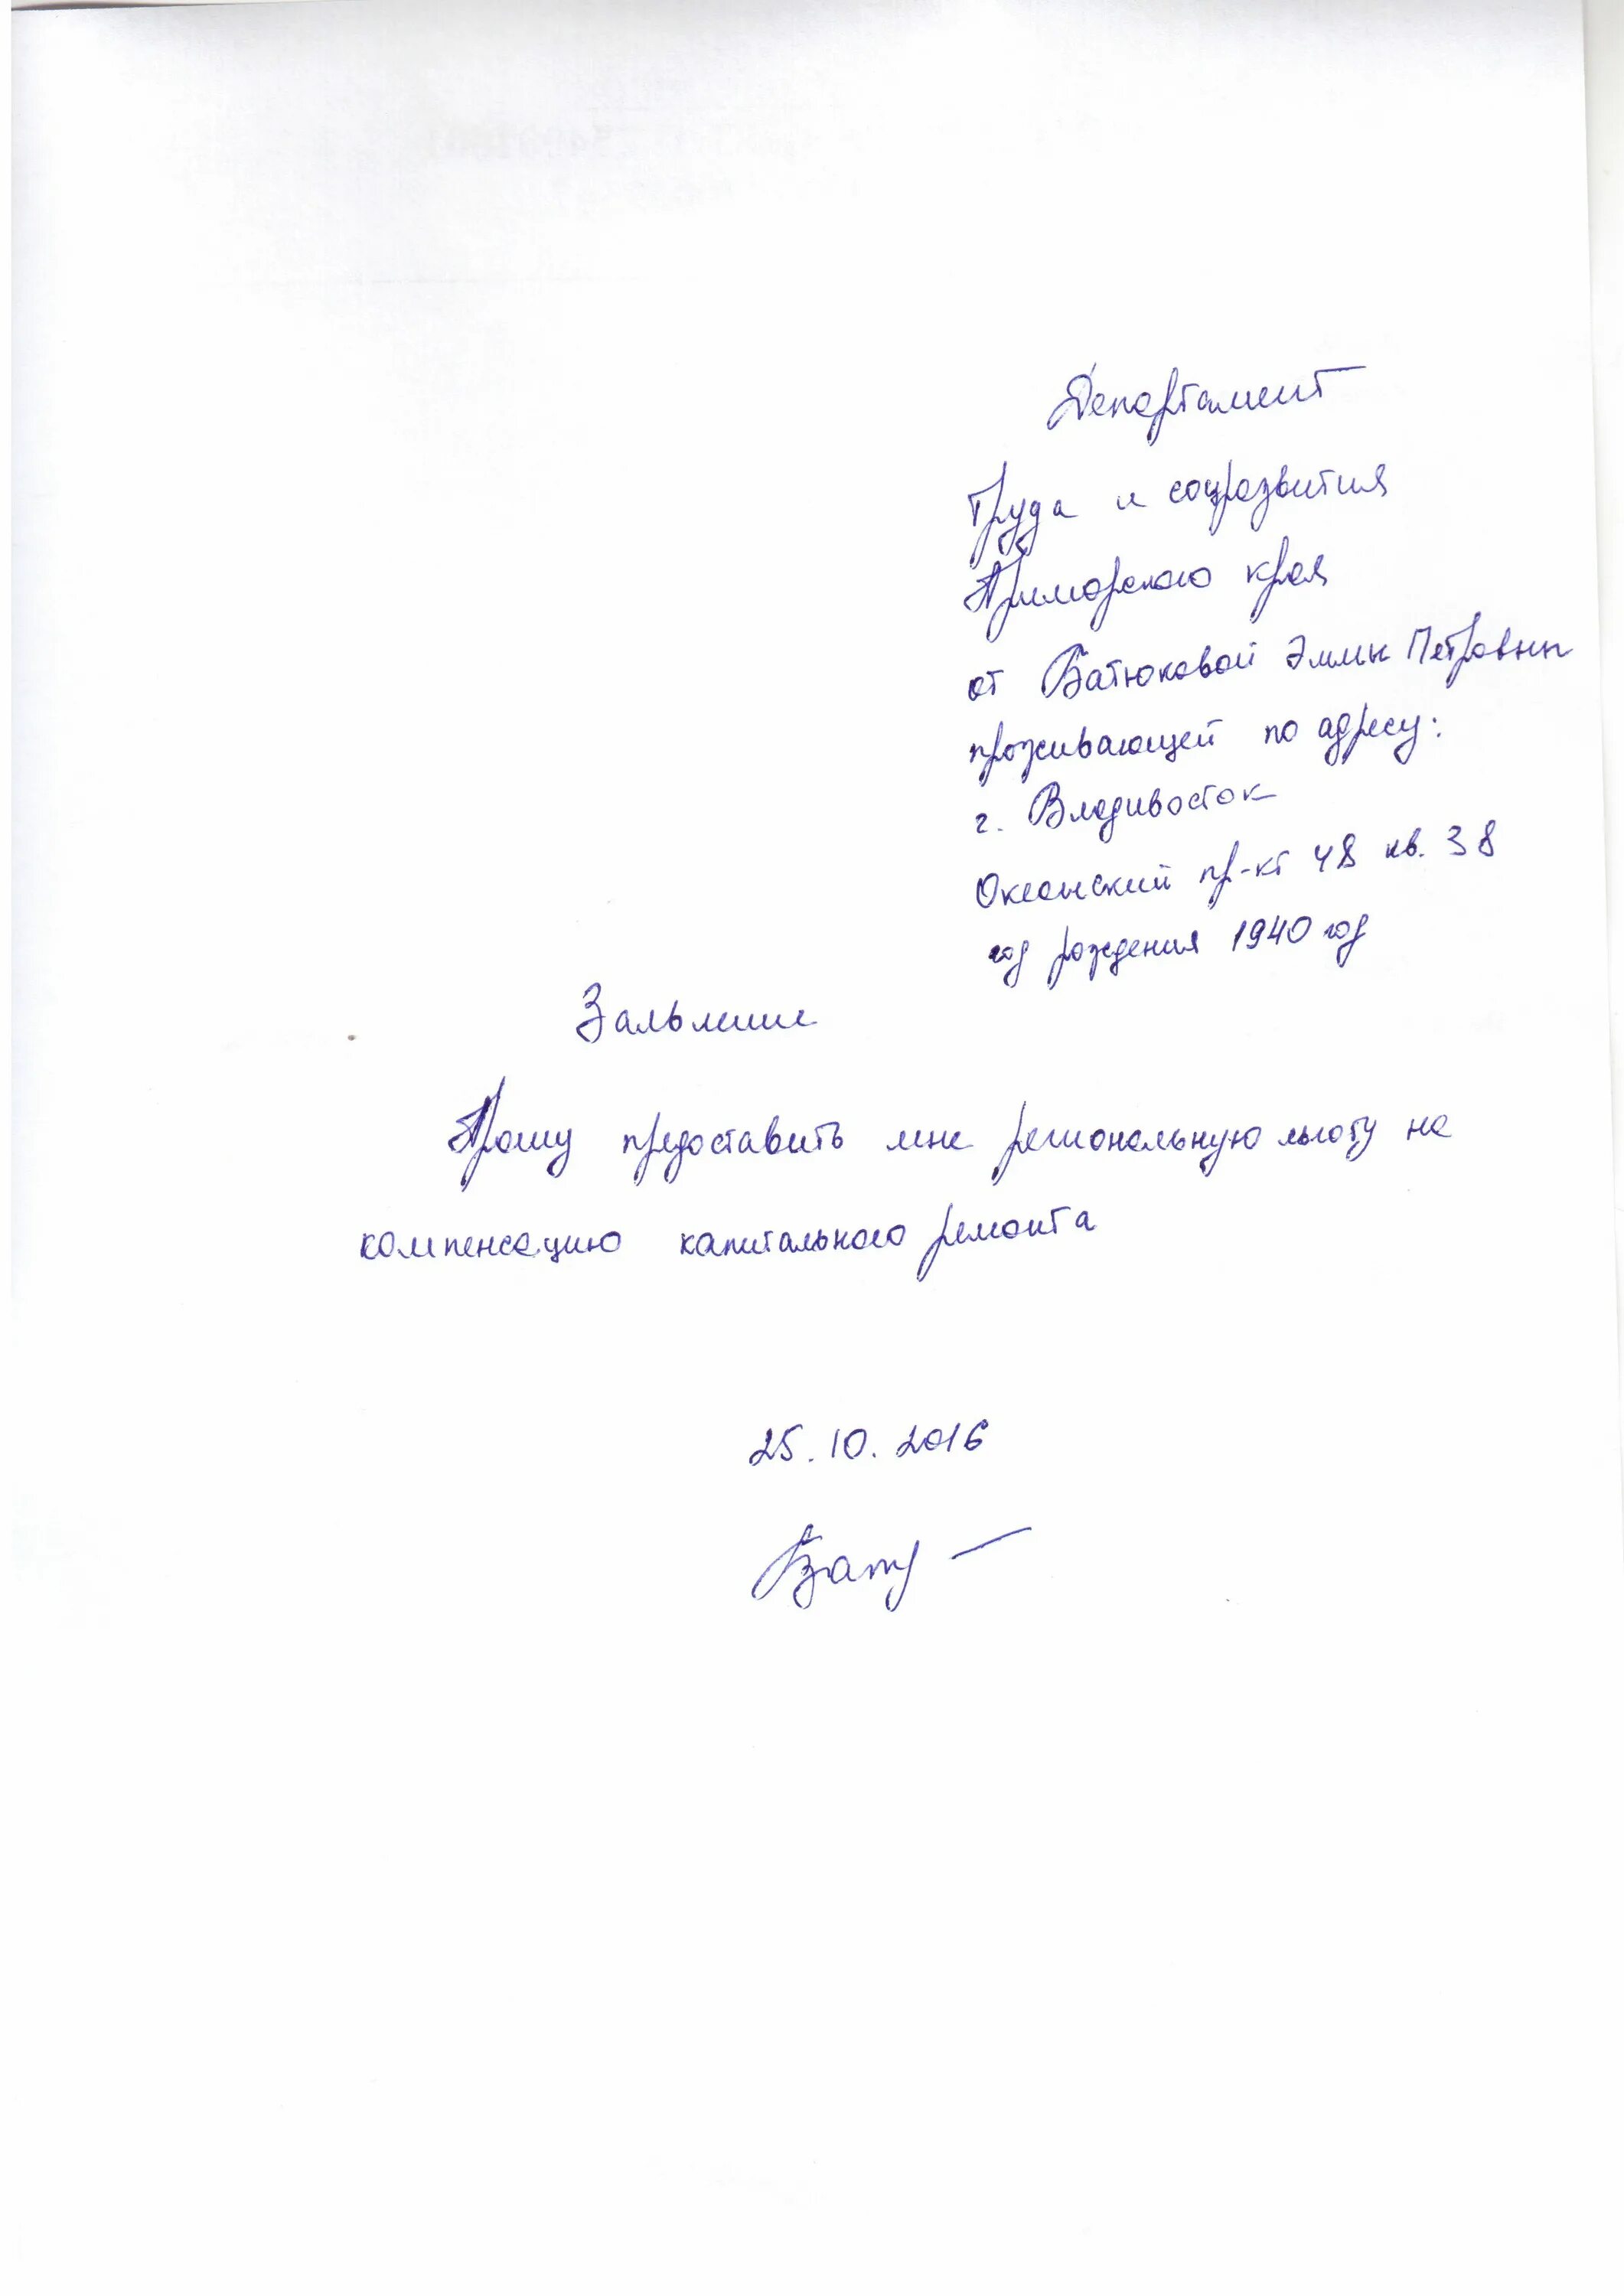 Департамент
Труда и соцразвития
Приморского края
от Батюковой Эммы Петровны
проживающей по адресу:
г. Владивосток
Океанский пр-кт 48 кв. 38
год рождения 1940 год
Заявление
Прошу предоставить мне региональную льготу на
компенсацию капитального ремонта
25.10.2016